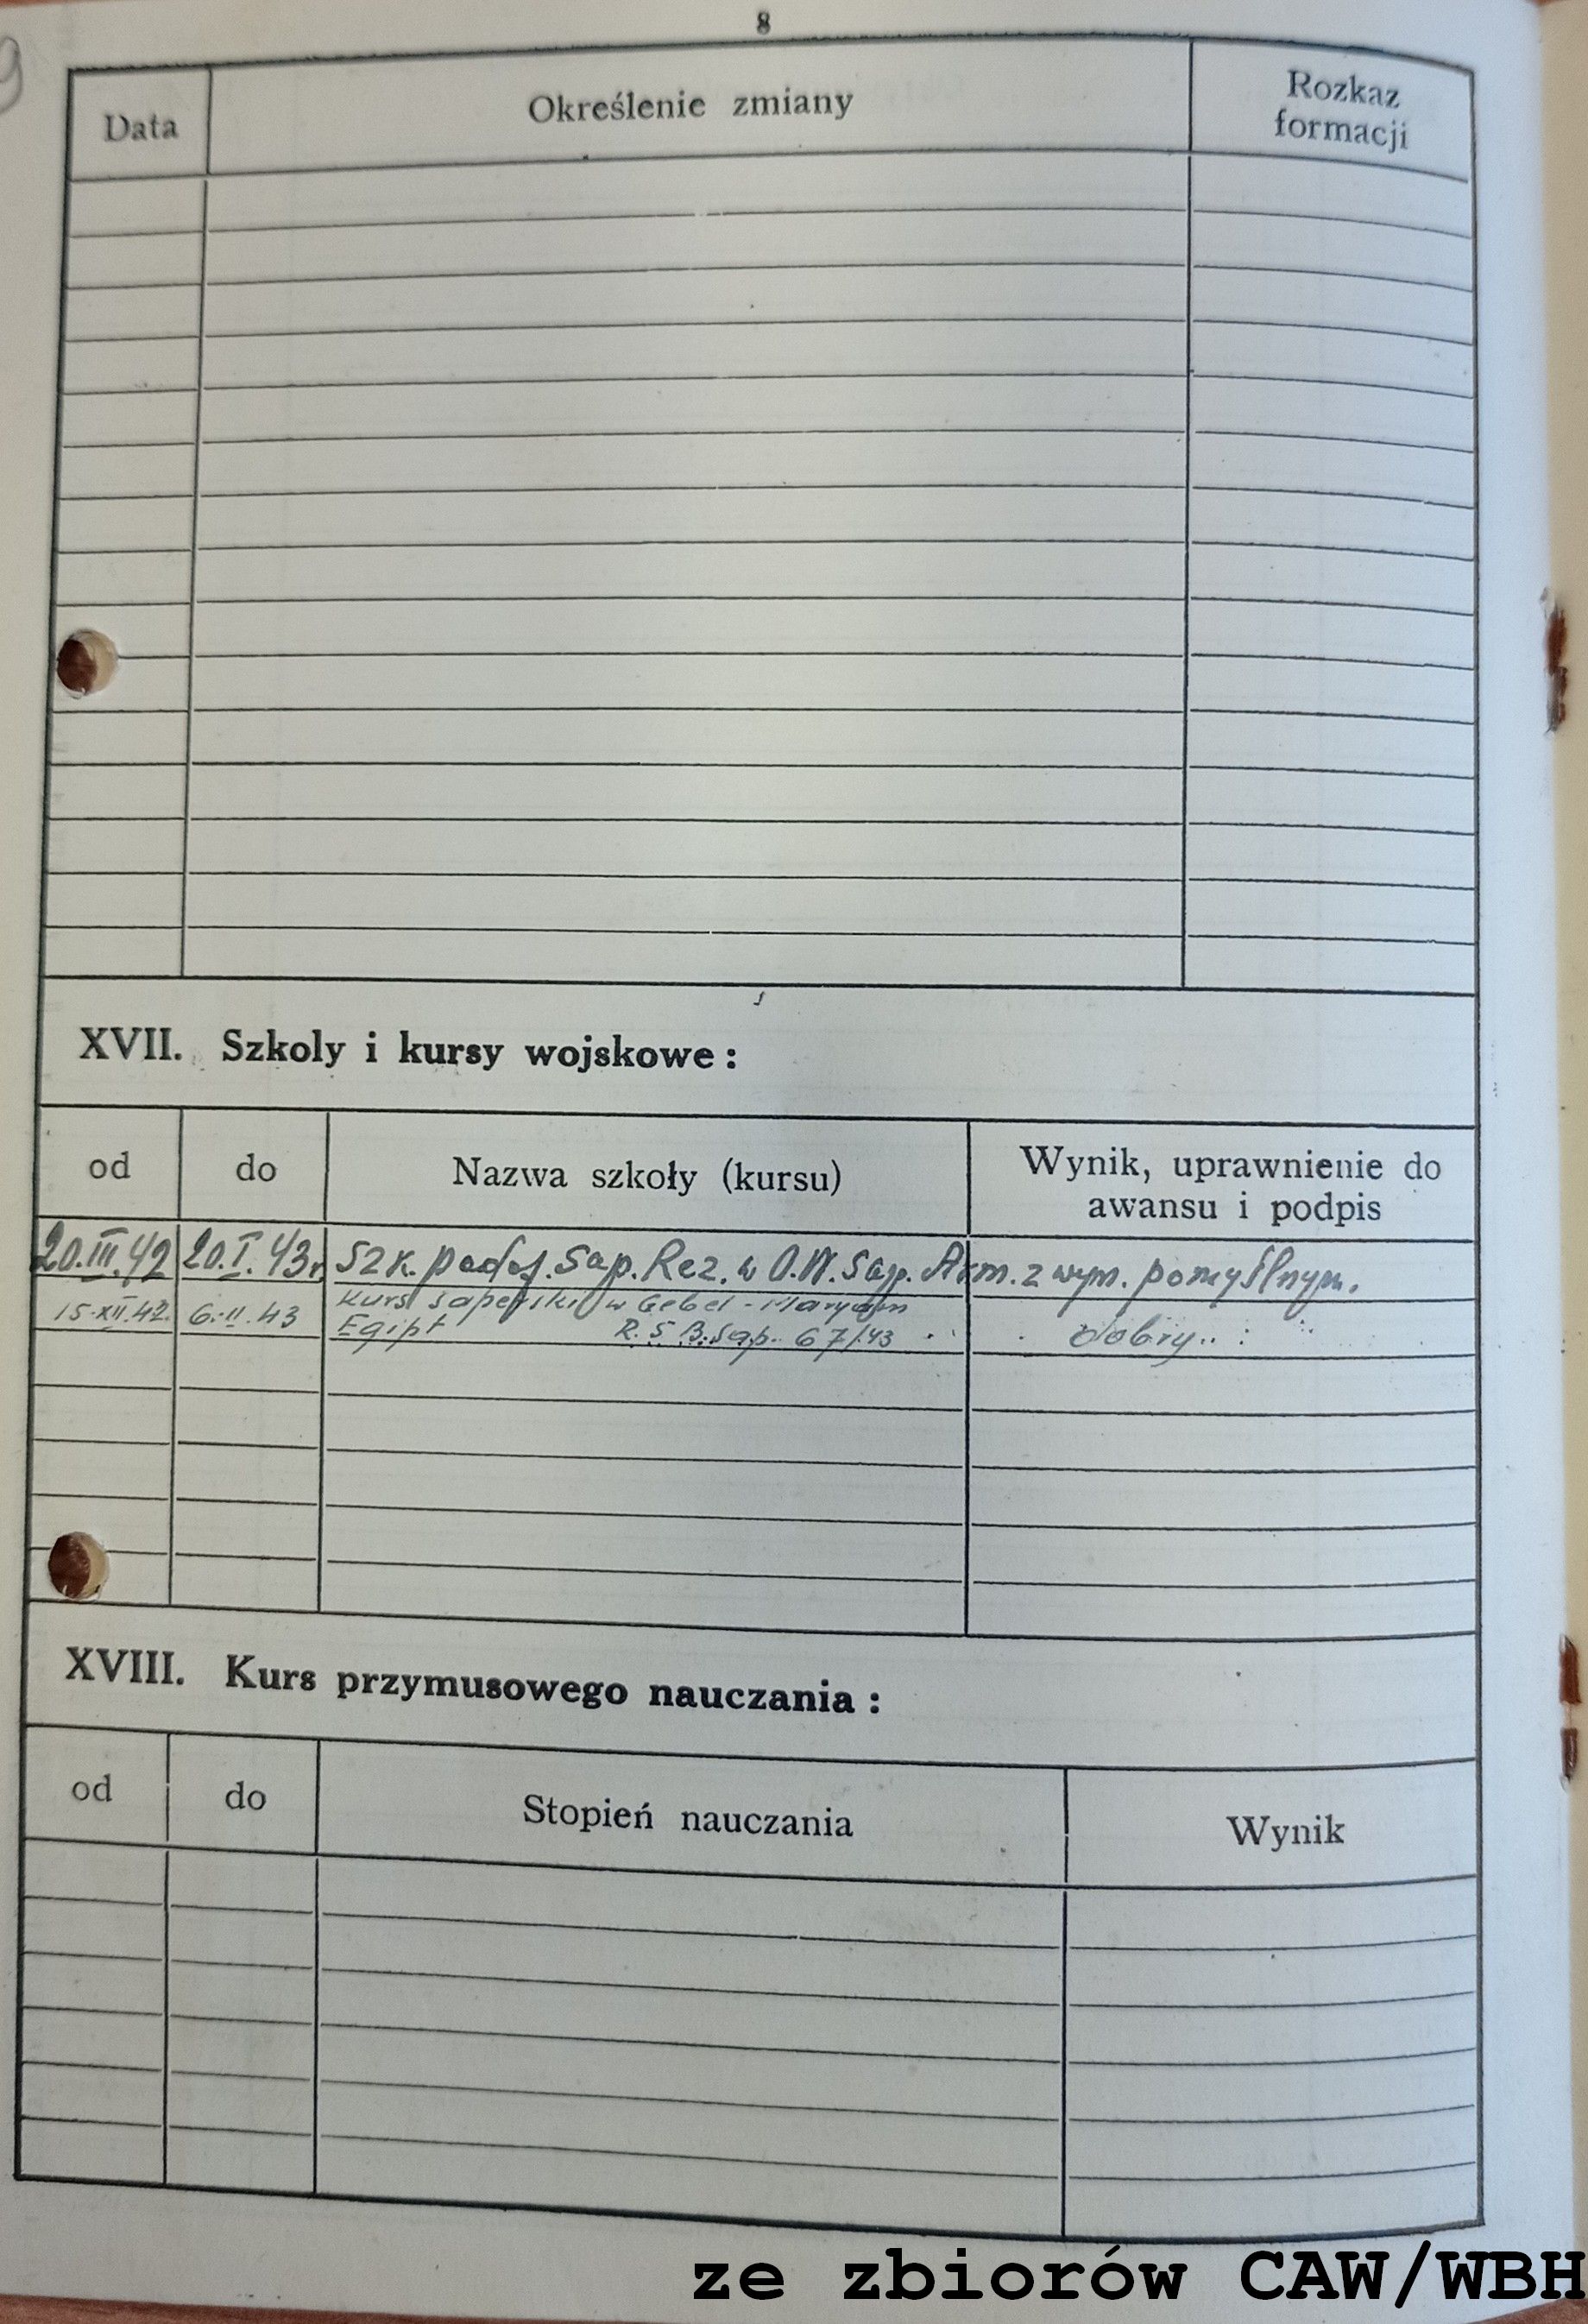 8
Data Określenie zmiany Rozkaz formacji
XVII. Szkoly i kursy wojskowe :
od do Nazwa szkoły (kursu) Wynik, uprawnienie do awansu i podpis
20.III.42 20.I.43r Szk. podof. Sap. Rez. w O.W. Sap. Arm. z wym. pomyślnym.
15.XII.42. 6.II.43 Kurs saperski w Gebel - Maryam
Egipt R. 5 B. Sap. 67/43 dobry
XVIII. Kurs przymusowego nauczania :
od do Stopień nauczania Wynik
ze zbiorów CAW/WBH